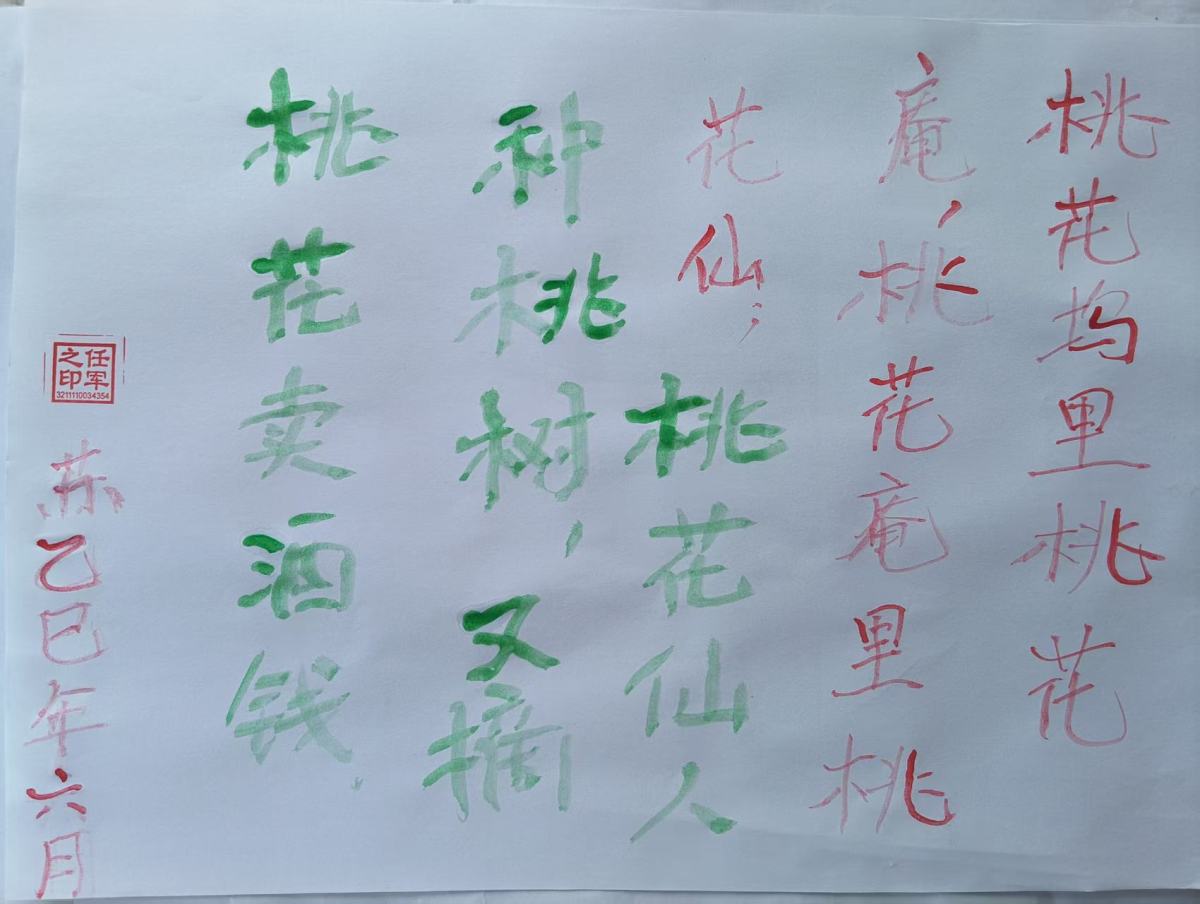 桃花坞里桃花
庵，桃花庵里桃
花仙；桃花仙人
种桃树，又摘
桃花卖酒钱.
苏乙巳年六月
任军
之印
3211110034354